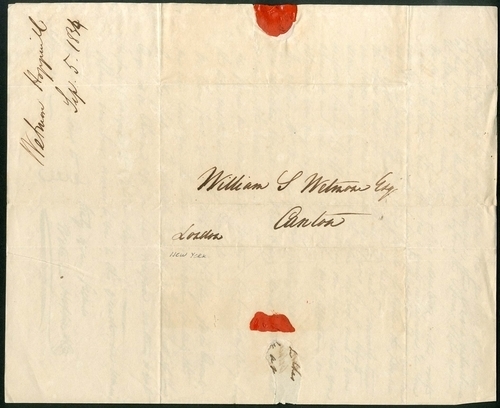 Wetmore Hoppin & Co
Sep. 5. 1834
William S Wetmore Esq
Canton
London
NEW YORK